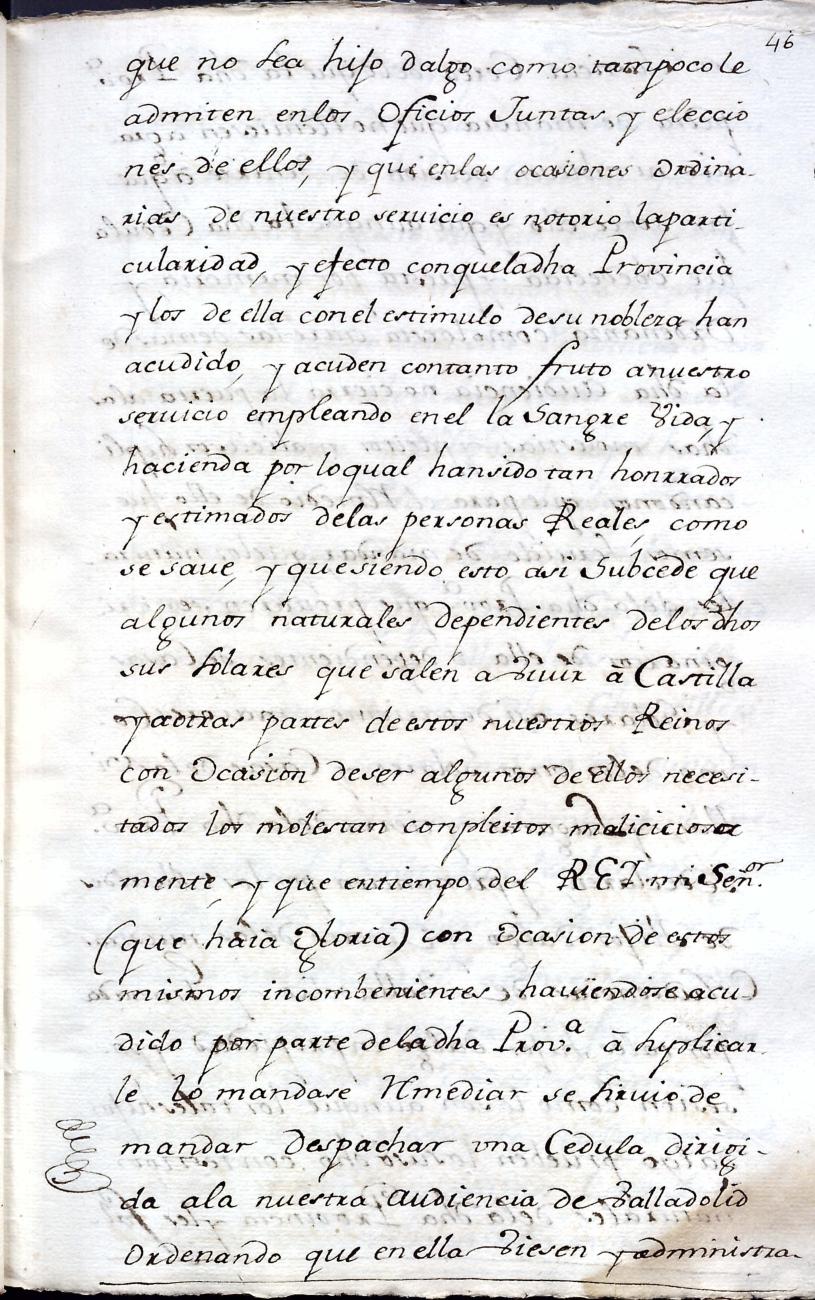 46
que no sea hijo dalgo como tampoco le
admiten enlos Oficios Juntas y eleccio
nes de ellos, y que enlas ocasiones Ordina-
rias de nuestro servicio es notorio laparti-
cularidad, y efecto conqueladha Provincia
ylos de ella conel estimulo desu nobleza han
acudido, y acuden contanto fruto anuestro
servicio empleando enel la Sangre Vida, y
hacienda por loqual hansido tan honrrados
yestimados delas personas Reales, como
se save, y quesiendo esto asi Subcede que
algunos naturales dependientes delos dhos
sus solares que salen a Vivir à Castilla
yaotras partes deestos nuestros Reinos
con Ocasion deser algunos de ellos necesi-
tados los molestan conpleitos maliciciosa
mente, y que entiempo del REI mi Señ.or
(que haia Gloria) con Ocasion de estos
mismos incombenientes, haviendose acu-
dido por parte deladha Prov.a à suplicar-
le lo mandase Remediar se sirvio de
mandar Despachar una Cedula dirigi-
da ala nuestra Audiencia de Valladolid
Ordenando que enella Viesen yadministra-